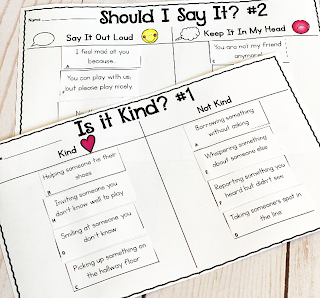 Name
Should I Say It? #2
Say It Out Loud
Keep It In My Head
I feel mad at you
because...
You are not my friend
anymore!
You can play with us,
but please play nicely.
Is it Kind? #1
Kind
Not Kind
Helping someone tie their
shoes
Inviting someone you
don't know well to play
H
Smiling at someone you
don't know
Picking up something on
the hallway floor
Borrowing something
without asking
A
Whispering something
about someone else
Reporting something you
heard but didn't see
F
Taking someone's spot in
the line
D